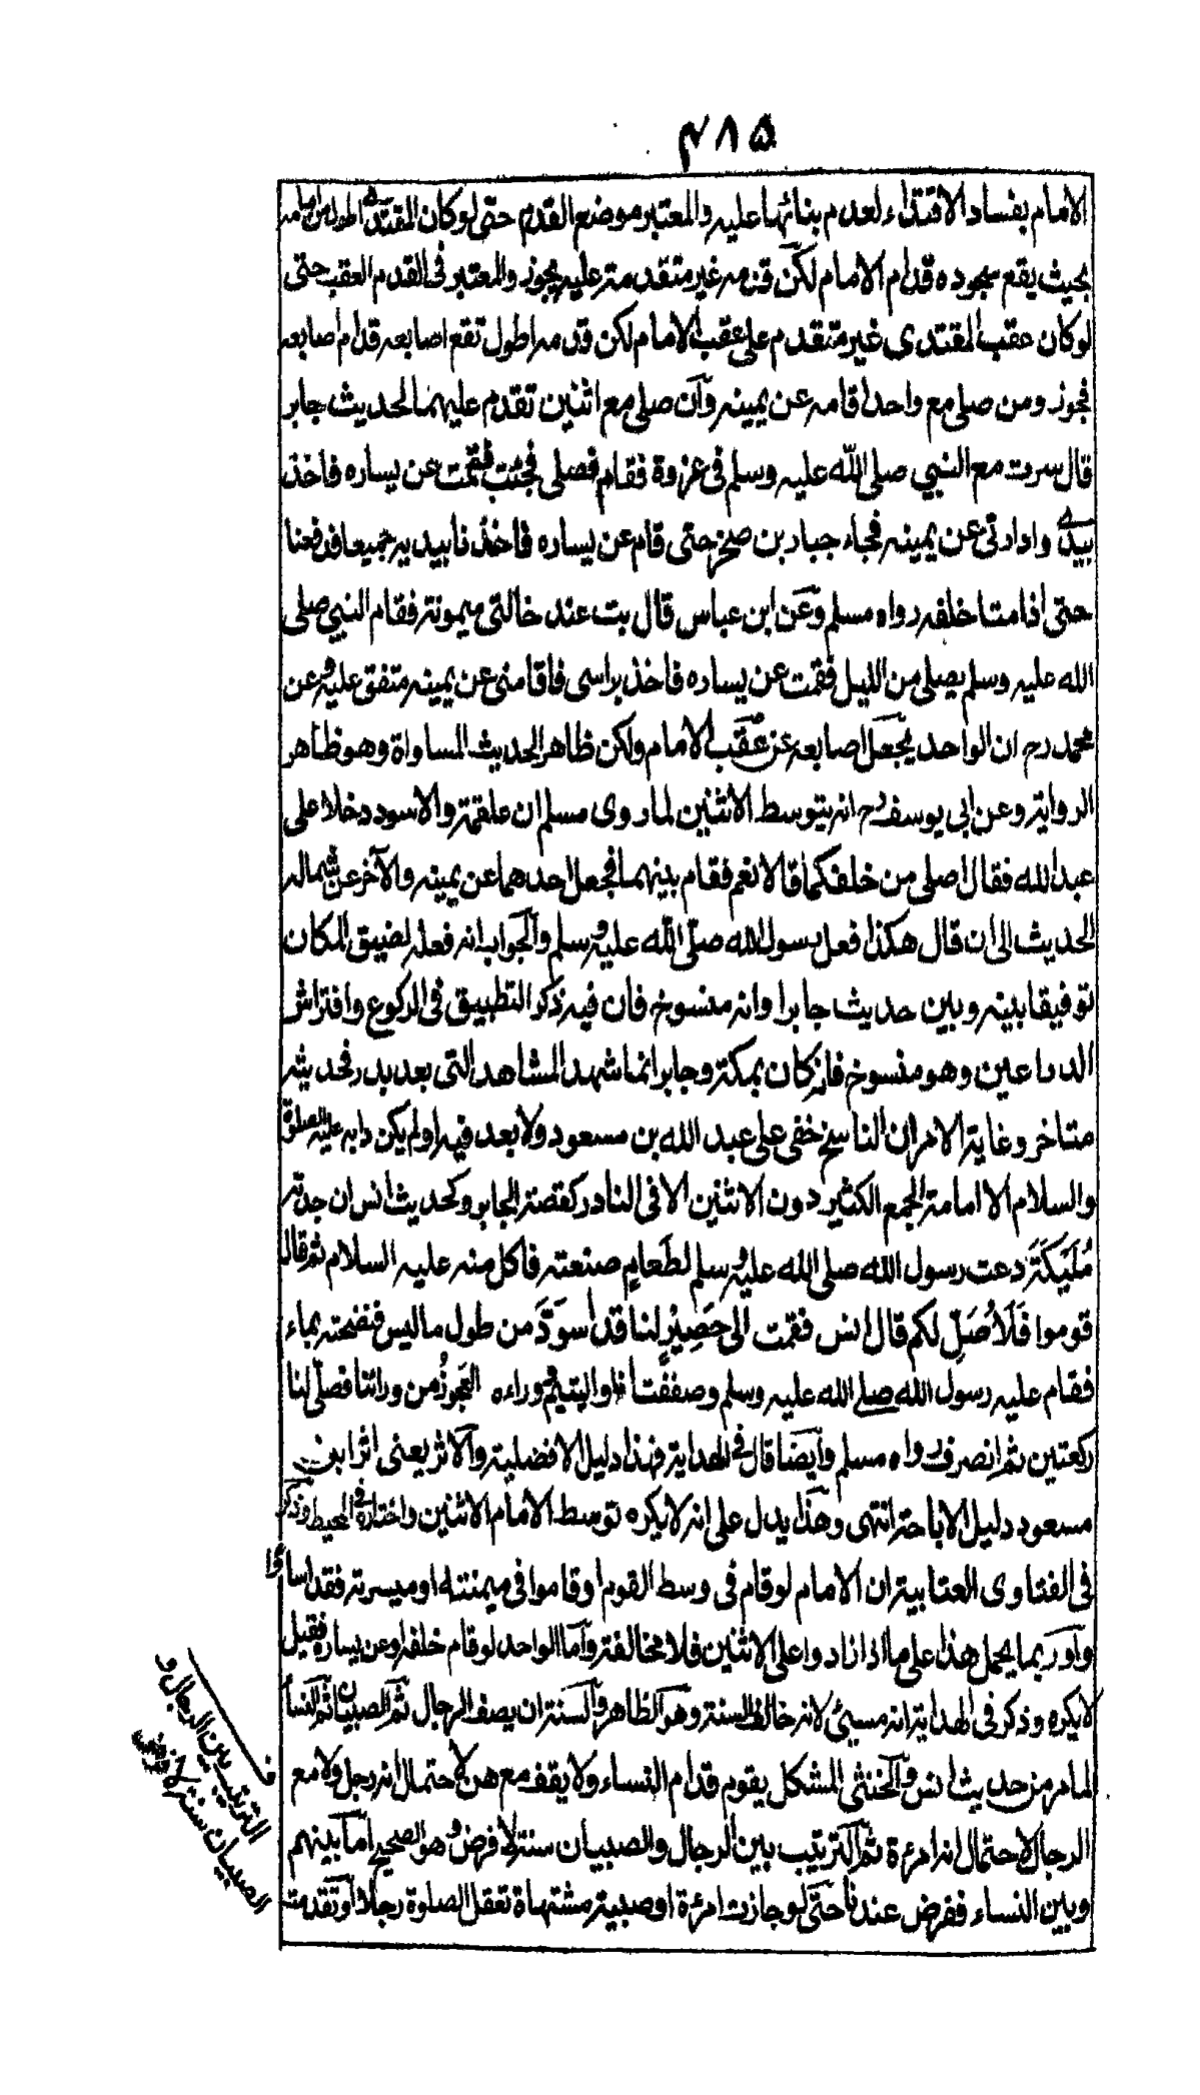 ۴۸۵
الامام بفساد الاقتداء لعدم بنائها عليه والمعتبر موضع القدم حتى لو كان المقتدى اطول من امامه
بحيث يقع سجوده قدام الامام لكن قدمه غير متقدمة عليه يجوز والمعتبر فى القدم العقب حتى
لو كان عقب المقتدى غير متقدم على عقب الامام لكن قدمه اطول تقع اصابعه قدام اصابعه
فجوز ومن صلى مع واحد اقامه عن يمينه وان صلى مع اثنين تقدم عليهما لحديث جابر
قال سرت مع النبي صلى الله عليه وسلم فى غزوة فقام فصلى فجئت فقمت عن يساره فاخذ
بيدى وادارنى عن يمينه فجاء جبار بن صخر حتى قام عن يساره فاخذنا بيديه جميعا فدفعنا
حتى اقامنا خلفه رواه مسلم وعن ابن عباس قال بت عند خالتى ميمونة فقام النبي صلى
الله عليه وسلم يصلى من الليل فقمت عن يساره فاخذ براسى فاقامنى عن يمينه متفق عليه وعن
محمد رح ان الواحد يجعل اصابعه عن عقب الامام ولكن ظاهر الحديث المساواة وهو ظاهر
الرواية وعن ابى يوسف رح انه يتوسط الاثنين لما روى مسلم ان علقمة والاسود دخلا على
عبد الله فقال اصلى من خلفكما قالا نعم فقام بينهما فجعل احدهما عن يمينه والآخر عن شماله
الحديث الى ان قال هكذا فعل رسول الله صلى الله عليه وسلم والجواب انه فعله لضيق المكان
توفيقا بينه وبين حديث جابر او انه منسوخ فان فيه ذكر التطبيق فى الركوع وافتراش
الذراعين وهو منسوخ فانه كان بمكة وجابر انما شهد المشاهد التى بعد بدر فحديثه
متاخر وغاية الامر ان الناسخ خفى على عبد الله بن مسعود ولا بعد فيه اولم يكن دابه عليه الصلوة
والسلام الا امامة الجمع الكثير دون الاثنين الا فى النادر كقصة الجابر وكحديث انس ان جدته
مُلَيكَةَ دعت رسول الله صلى الله عليه وسلم لطَعامٍ صنعته فاكل منه عليه السلام ثم قال
قوموا فَلَاُصَلِّ لكم قال انس فقمت الى حَصِيْرٍ لنا قد اسوَدَّ من طول ما لبس فنضحته بماء
فقام عليه رسول الله صلى الله عليه وسلم وصففت انا واليتيم وراءه والعجوزُ من ورائنا فصلى لنا
ركعتين ثم انصرف رواه مسلم وايضا قال فى الهداية فهذا دليل الافضلية والاثر يعنى اثر ابن
مسعود دليل الاباحة انتهى وهذا يدل على انه لا يكره توسط الامام الاثنين واختاره فى المحيط وذكر
فى الفتاوى العتابية ان الامام لو قام فى وسط القوم او قاموا فى ميمنته او ميسرته فقد اساؤا
ولو ربما يحمل هذا على ما اذا زادوا على الاثنين فلا مخالفة واما الواحد لو قام خلفه او عن يساره فقيل
لا يكره وذكر فى الهداية انه مسيئ لانه خالف السنة وهو الظاهر والسنة ان يصف الرجال ثم الصبيان ثم النساء
لما مر من حديث انس والخنثى المشكل يقوم قدام النساء ولا يقف معهن لاحتمال انه رجل ولا مع
الرجال لاحتمال انه امرءة ثم الترتيب بين الرجال والصبيان سنة لا فرض وهو الصحيح اما بينهم
وبين النساء ففرض عندنا حتى لو حاذت امرءة او صبية مشتهاة تعقل الصلوة رجلا او تقدمته
ف
الترتيب بين الرجال و
الصبيان سنة لا فرض